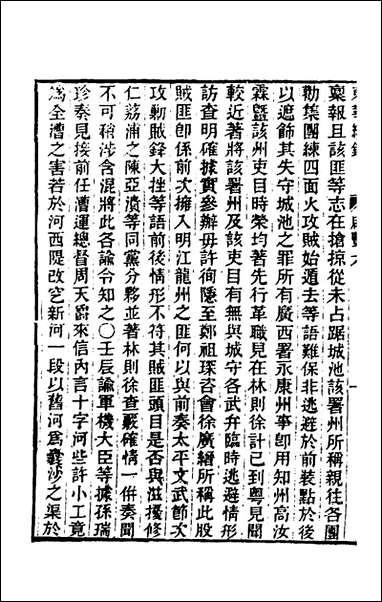 稟報且該匪等志在搶掠從未占踞城池該署州所稱親往各團
勸集團練四面火攻賊始遁去等語難保非逃避於前裝點於後
以遮飾其失守城池之罪所有廣西署永康州事卽用知州高汝
霖曁該州吏目時榮均著先行革職見在林則徐計已到粵見聞
較近著將該署州及該吏目有無與城守各武弁臨時逃避情形
訪查明確據實參辦毋許徇隱至鄭祖琛咨會徐廣縉所稱此股
賊匪卽係前次擁入明江龍州之匪何以與前奏太平文武節次
攻勦賊鋒大挫等語前後情形不符其賊匪頭目是否與滋擾修
仁荔浦之陳亞潰等同黨分夥並著林則徐查覈確情一倂奏聞
不可稍涉含混將此各諭令知之〇壬辰諭軍機大臣等據孫瑞
珍奏見接前任漕運總督周天爵來信內言十字河些許小工竟
爲全漕之害若於河西隄改空新河一段以舊河爲囊沙之渠於